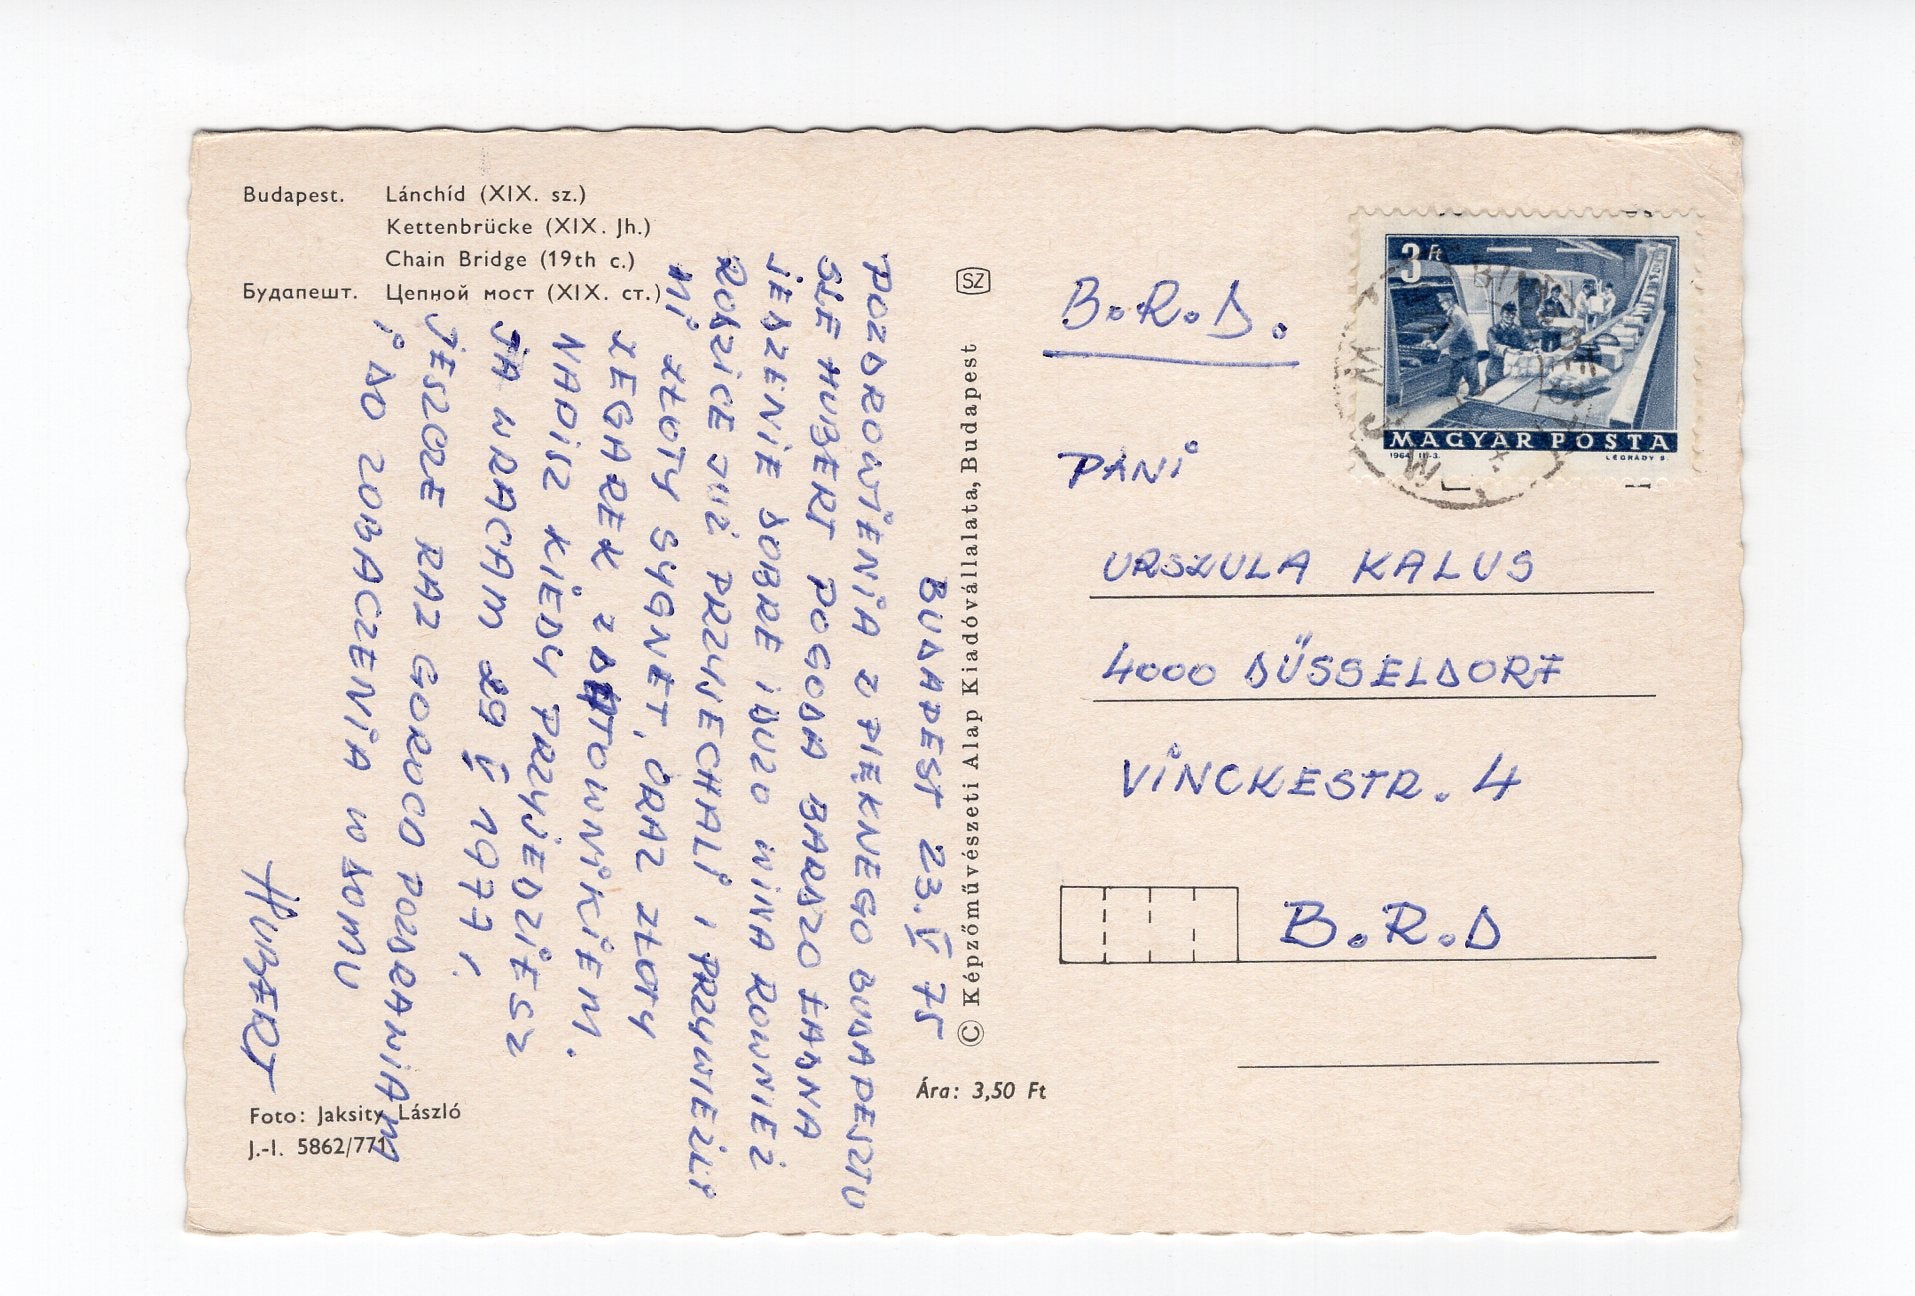 Budapest. Lánchíd (XIX. sz.)
Kettenbrücke (XIX. Jh.)
Chain Bridge (19th c.)
Будапешт. Цепной мост (XIX. ст.)
BUDAPEST 23. V 75
POZDROWIENIA Z PIĘKNEGO BUDAPESZTU
SLE HUBERT POGODA BARDZO ŁADNA
JEDZENIE DOBRE I DUZO WINA ROWNIEŻ
RODZICE JUŻ PRZYJECHALI I PRZYWIEŹLI
MI ZŁOTY SYGNET, ORAZ ZŁOTY
ZEGAREK Z DATOWNIKIEM.
NAPISZ KIEDY PRZYJEDZIESZ
JA WRACAM 29 V 1977 r.
JESZCZE RAZ GOROCO POZDRANIAM
I DO ZOBACZENIA W DOMU
HUBERT
Foto: Jaksity László
J.-I. 5862/771
SZ
© Képzőművészeti Alap Kiadóvállalata, Budapest
Ára: 3,50 Ft
3 Ft
MAGYAR POSTA
1964 LÉGRÁDY S.
B.R.D.
PANI
URSZULA KALUS
4000 DÜSSELDORF
VINCKESTR. 4
B.R.D